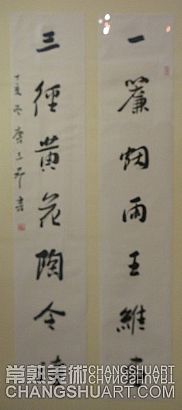 一簾烟雨王維畫
三徑黄花陶令詩
常熟美術CHANGSHUART
CHANGSHUART.COM